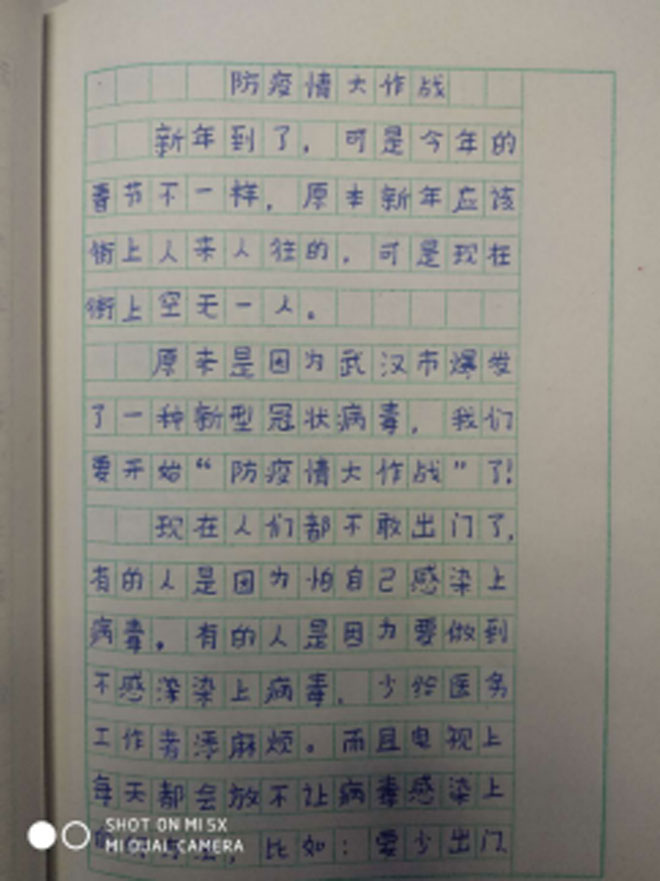 防疫情大作战
新年到了，可是今年的
春节不一样，原本新年应该
街上人来人往的，可是现在
街上空无一人。
原来是因为武汉市爆发
了一种新型冠状病毒，我们
要开始“防疫情大作战”了！
现在人们都不敢出门了，
有的人是因为怕自己感染上
病毒。有的人是因为要做到
不感深染上病毒，少给医务
工作者添麻烦。而且电视上
每天都会放不让病毒感染上
，比如：要少出门
SHOT ON MI 5X
MI DUAL CAMERA